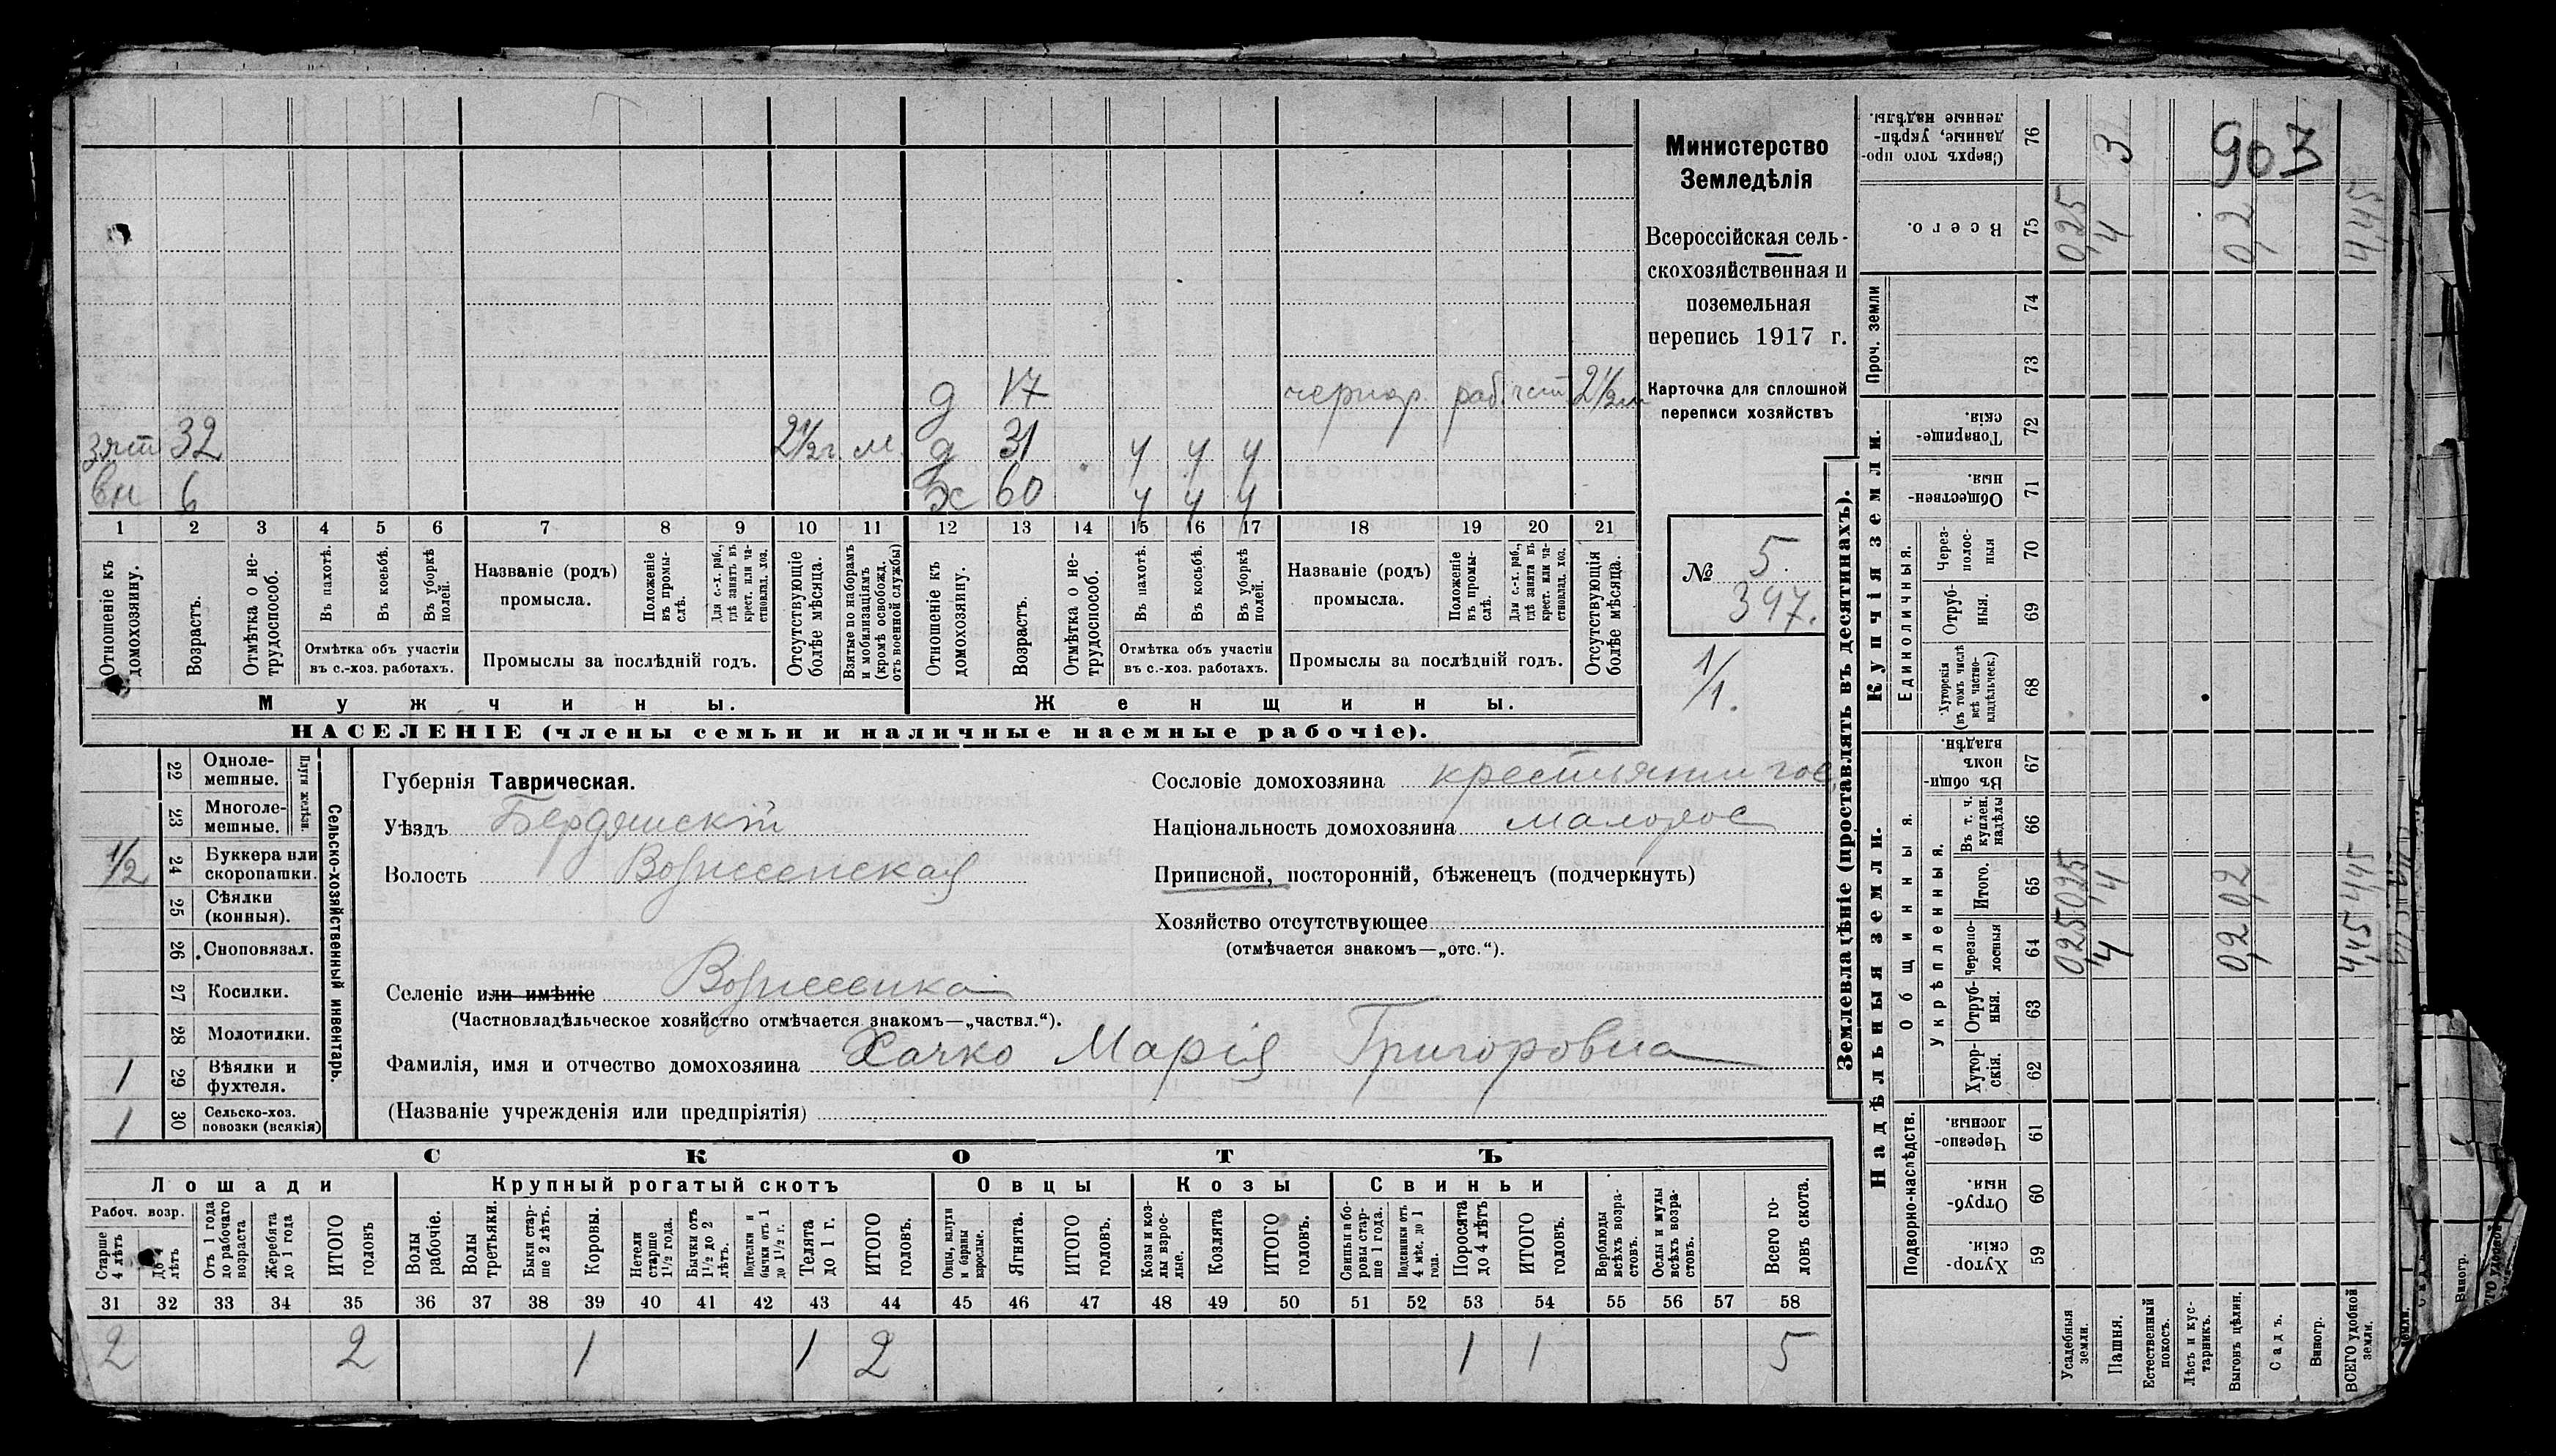 Министерство
Земледѣлія
Всероссійская сель-
скохозяйственная и
поземельная
перепись 1917 г.
Карточка для сплошной
переписи хозяйствъ
№ 5.
397.
1/1.
903
д 17 чернор. раб. 2½
зят 32 2½ г. м. д 31 ч ч ч
вн 6 ж 60 ч ч ч
1 2 3 4 5 6 7 8 9 10 11 12 13 14 15 16 17 18 19 20 21
Отношеніе къ домохозяину.
Возрастъ.
Отмѣтка о не-трудоспособ.
Въ пахотѣ.
Въ косьбѣ.
Въ уборкѣ полей.
Отмѣтка объ участіи
въ с.-хоз. работахъ.
Названіе (родъ)
промысла.
Положеніе въ промы-слѣ.
Для с.-х. раб., гдѣ занятъ въ крест. или ча-стновлад. хоз.
Промыслы за послѣдній годъ.
Отсутствующіе болѣе мѣсяца.
Взятые по наборамъ и мобилизаціямъ (кромѣ освобожд. отъ военной службы)
Отношеніе къ домохозяину.
Возрастъ.
Отмѣтка о не-трудоспособ.
Въ пахотѣ.
Въ косьбѣ.
Въ уборкѣ полей.
Отмѣтка объ участіи
въ с.-хоз. работахъ.
Названіе (родъ)
промысла.
Положеніе въ промы-слѣ.
Для с.-х. раб., гдѣ занята въ крест. или ча-стновлад. хоз.
Промыслы за послѣдній годъ.
Отсутствующія болѣе мѣсяца.
Мужчины. Женщины.
НАСЕЛЕНІЕ (члены семьи и наличные наемные рабочіе).
22 Одноле-мешные.
23 Многоле-мешные.
Плуги желѣзн.
½ 24 Буккера или скоропашки.
25 Сѣялки (конныя).
26 Сноповязал.
27 Косилки.
28 Молотилки.
1 29 Вѣялки и фухтеля.
1 30 Сельско-хоз. повозки (всякія)
Сельско-хозяйственный инвентарь.
Губернія Таврическая.
Уѣздъ Бердянскій
Волость
Селеніе или имѣніе
(Частновладѣльческое хозяйство отмѣчается знакомъ—„частвл.“).
Фамилія, имя и отчество домохозяина Хачко Марія Григоровна
(Названіе учрежденія или предпріятія)
Сословіе домохозяина крестьянинъ
Національность домохозяина малорос
Приписной, посторонній, бѣженецъ (подчеркнуть)
Хозяйство отсутствующее
(отмѣчается знакомъ—„отс.“).
СКОТЪ
Лошади Крупный рогатый скотъ Овцы Козы Свиньи
Рабоч. возр.
Старше 4 лѣтъ
До 4 лѣтъ
Отъ 1 года до рабочаго возраста
Жеребята до 1 года
ИТОГО головъ
Волы рабочіе.
Волы третьяки.
Быки стар-ше 2 лѣтъ.
Коровы.
Нетели старше 1½ года.
Бычки отъ 1½ до 2 лѣтъ.
Подтелки и бычки отъ 1 до 1½ г.
Телята до 1 г.
ИТОГО головъ.
Овцы, валухи и бараны взрослые.
Ягнята.
ИТОГО головъ.
Козы и коз-лы взрос-лые.
Козлята
ИТОГО головъ.
Свиньи и бо-ровы стар-ше 1 года.
Подсвинки отъ 4 мѣс. до 1 года.
Поросята до 4 лѣтъ
ИТОГО головъ.
Верблюды всѣхъ возра-стовъ.
Ослы и мулы всѣхъ возра-стовъ.
Всего го-ловъ скота.
31 32 33 34 35 36 37 38 39 40 41 42 43 44 45 46 47 48 49 50 51 52 53 54 55 56 57 58
2 2 1 1 2 1 1 5
Землевладѣніе (проставлять въ десятинахъ).
Надѣльныя земли.
Купчія земли.
Проч. земли
Сверхъ того про-данные, укрѣп-ленные надѣлы. 76 3
Всего. 75 0,25 4 0,2 4,45
74
73
Товарище-скія. 72
Обществен-ныя. 71
Единоличныя.
Через-полос-ныя 70
Отруб-ныя. 69
Хуторскія (въ томъ числѣ всѣ частно-владѣльческ.) 68
Общинныя.
Въ общин-номъ владѣн. 67
Укрѣпленныя.
Въ т. ч. куплен. надѣлы 66
Итого. 65 0,25 4 0,2 4,45
Черезпо-лосныя 64 0,25 4 0,2 4,45
Отруб-ныя. 63
Хутор-скія. 62
Подворно-наслѣдств.
Черезпо-лосныя. 61
Отруб-ныя. 60
Хутор-скія. 59
Усадебныя земли.
Пашня.
Естественный покосъ.
Лѣсъ и кус-тарникъ.
Выгонъ цѣлин.
Садъ.
Виногр.
ВСЕГО удобной земли.
Виногр.